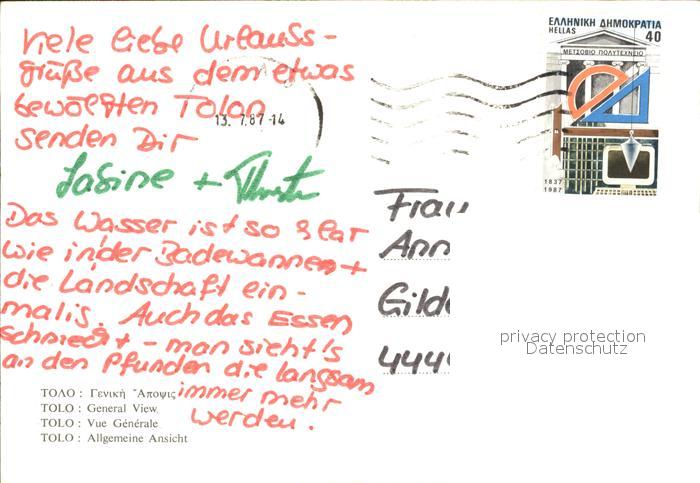 Viele liebe Urlaubs-
grüße aus dem etwas
bewölkten Tolon
senden Dir
Sabine +
Das Wasser ist so klar
wie in der Badewanne +
die Landschaft ein-
malig. Auch das Essen
schmeckt - man sieht's
an den Pfunden die langsam
immer mehr
werden.
ΤΟΛΟ : Γενική Ἄποψις
TOLO : General View
TOLO : Vue Générale
TOLO : Allgemeine Ansicht
13. 7.87-14
ΕΛΛΗΝΙΚΗ ΔΗΜΟΚΡΑΤΙΑ
HELLAS 40
ΜΕΤΣΟΒΙΟ ΠΟΛΥΤΕΧΝΕΙΟ
1837
1987
Frau
Ann
Gild
444
privacy protection
Datenschutz